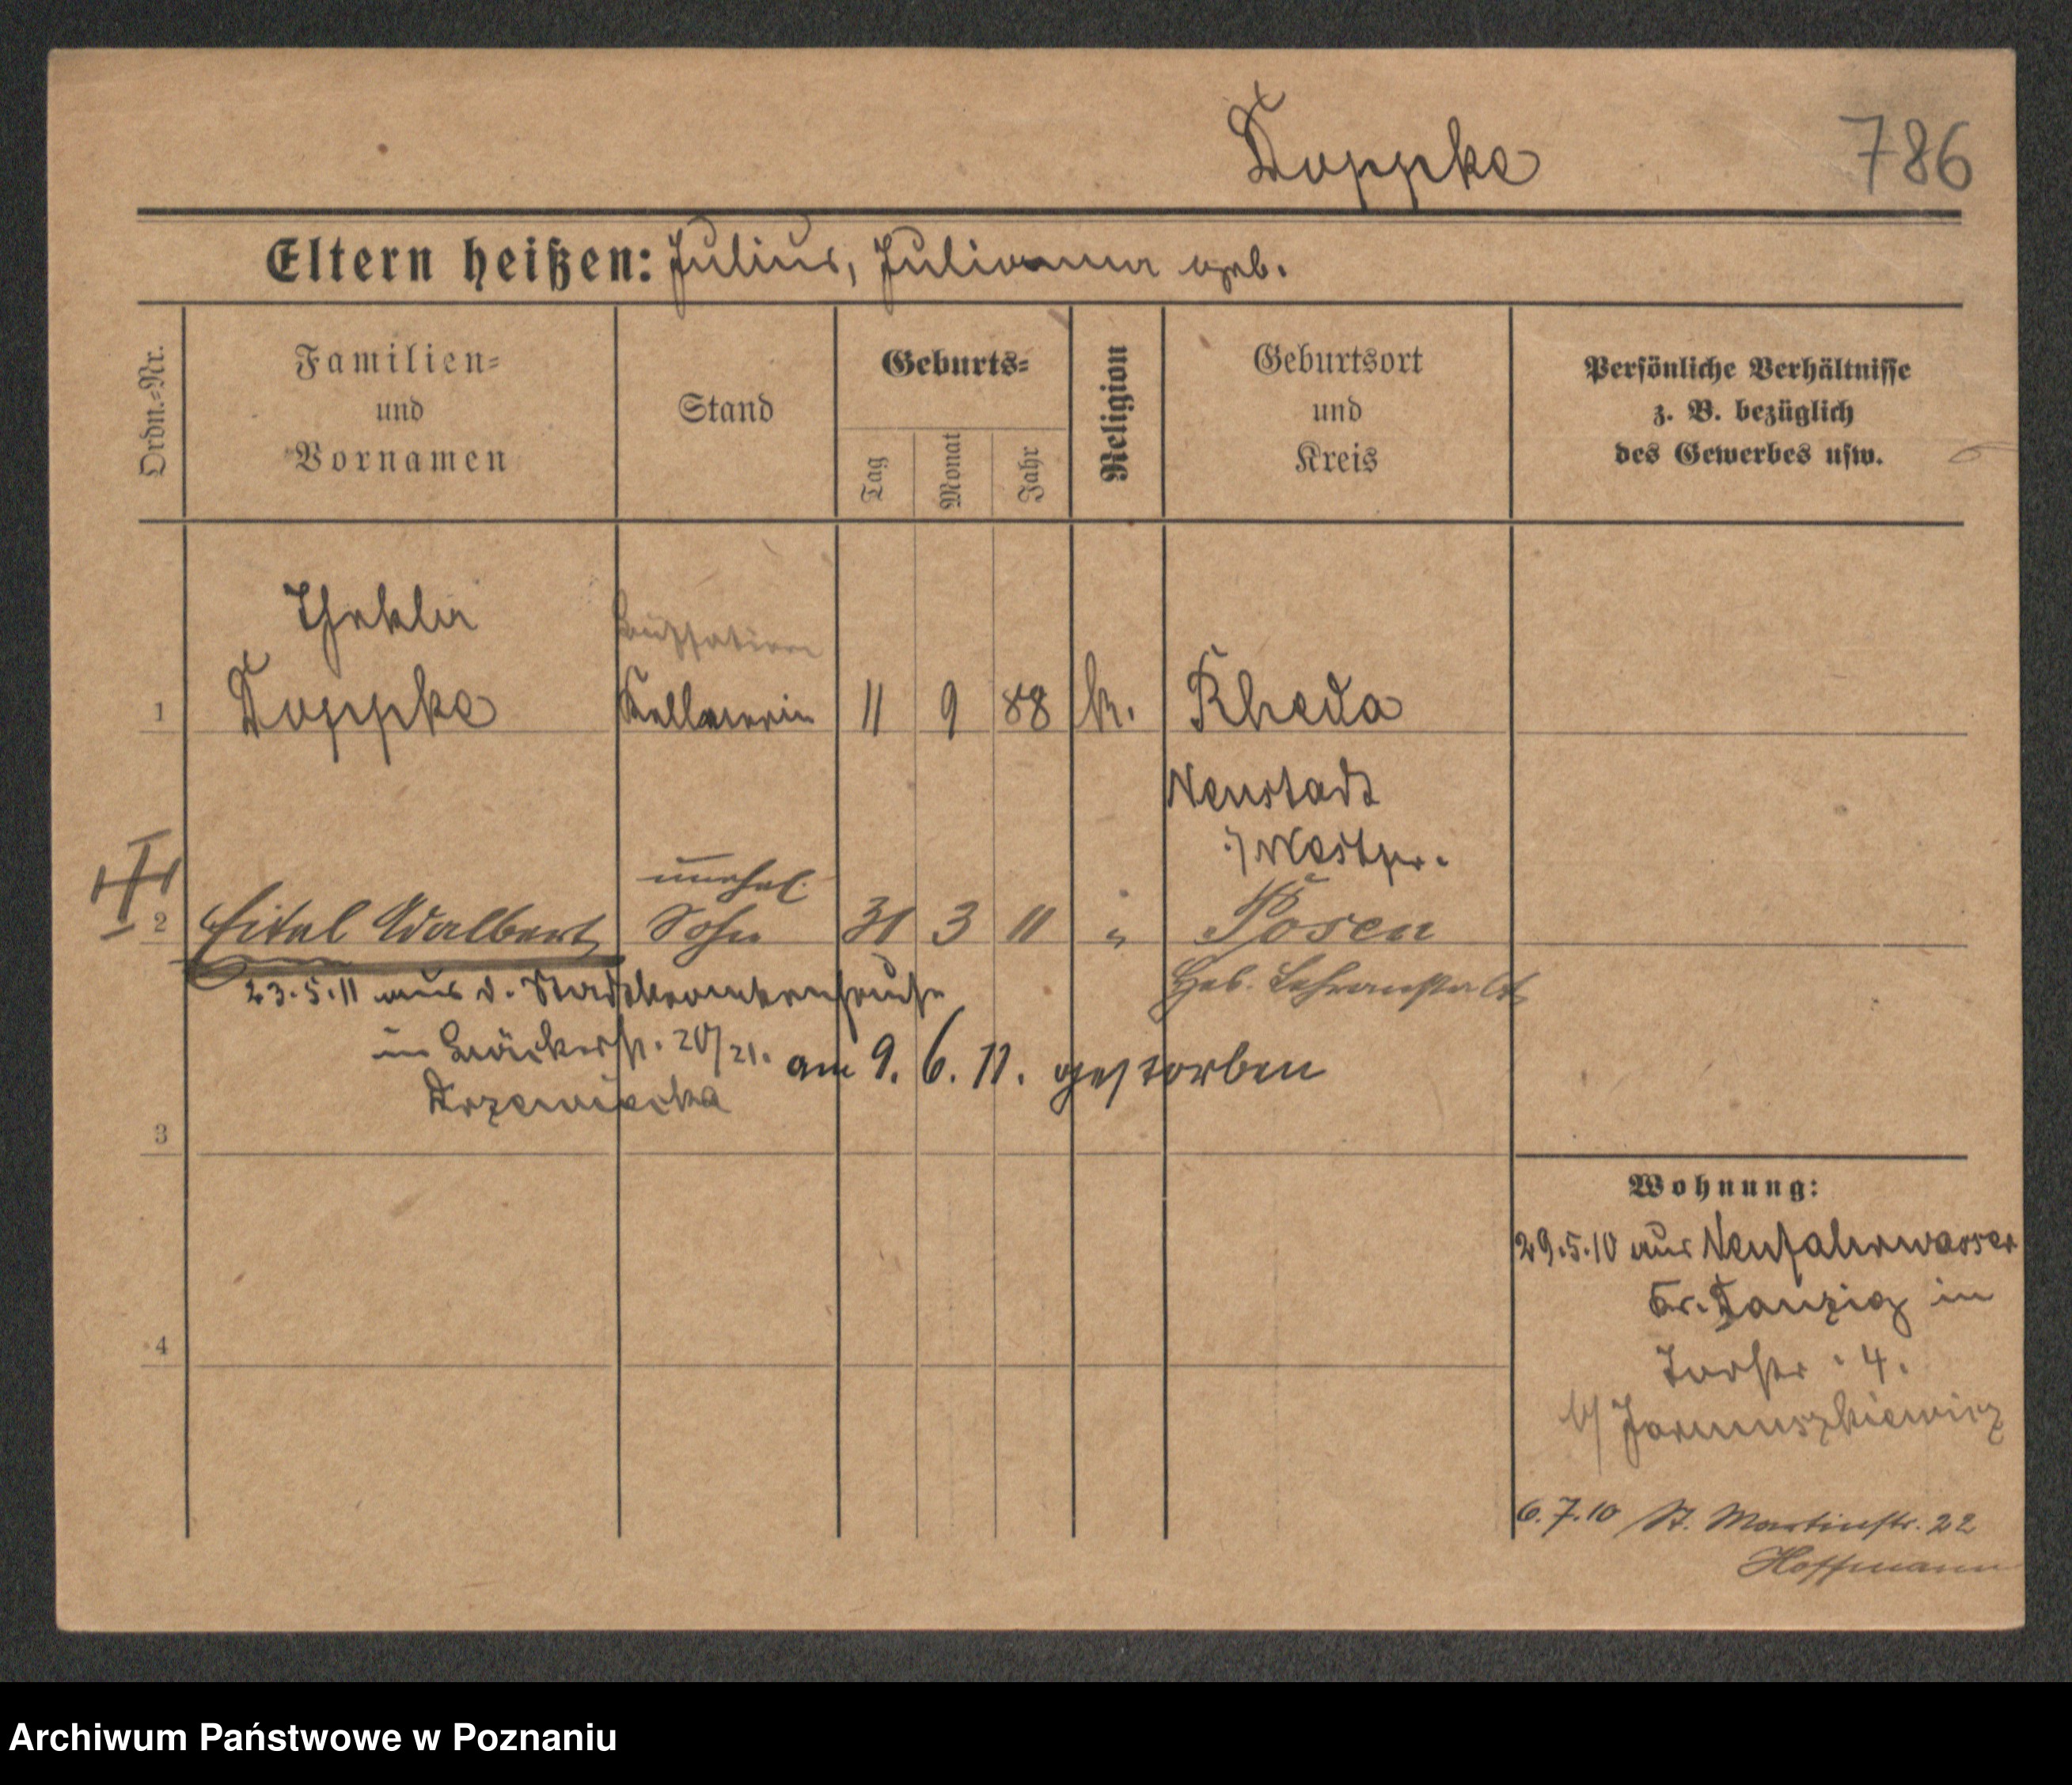 Doppke 786
Eltern heißen: Julius, Julianna geb.
Ordn.-Nr.
Familien-
und
Vornamen
Stand
Geburts-
Tag
Monat
Jahr
Religion
Geburtsort
und
Kreis
Persönliche Verhältnisse
z. B. bezüglich
des Gewerbes usw.
Thekla
1 Doppke Kellnerin 11 9 88 k. Rheda
Neustadt
Westpr.
unehel.
2 Eitel Adalbert Sohn 31 3 11 " Posen
Heb. Lehranstalt
23.5.11 aus d. Stadtkrankenhause
in Bäckerstr. 20/21. am 9. 6. 11. gestorben
Drzewiecka
3
4
Wohnung:
29.5.10 aus Neufahrwasser
Kr. Danzig in
Torstr. 4.
b/ Jarmuszkiewicz
6.7.10 St. Martinstr. 22
Hoffmann
Archiwum Państwowe w Poznaniu